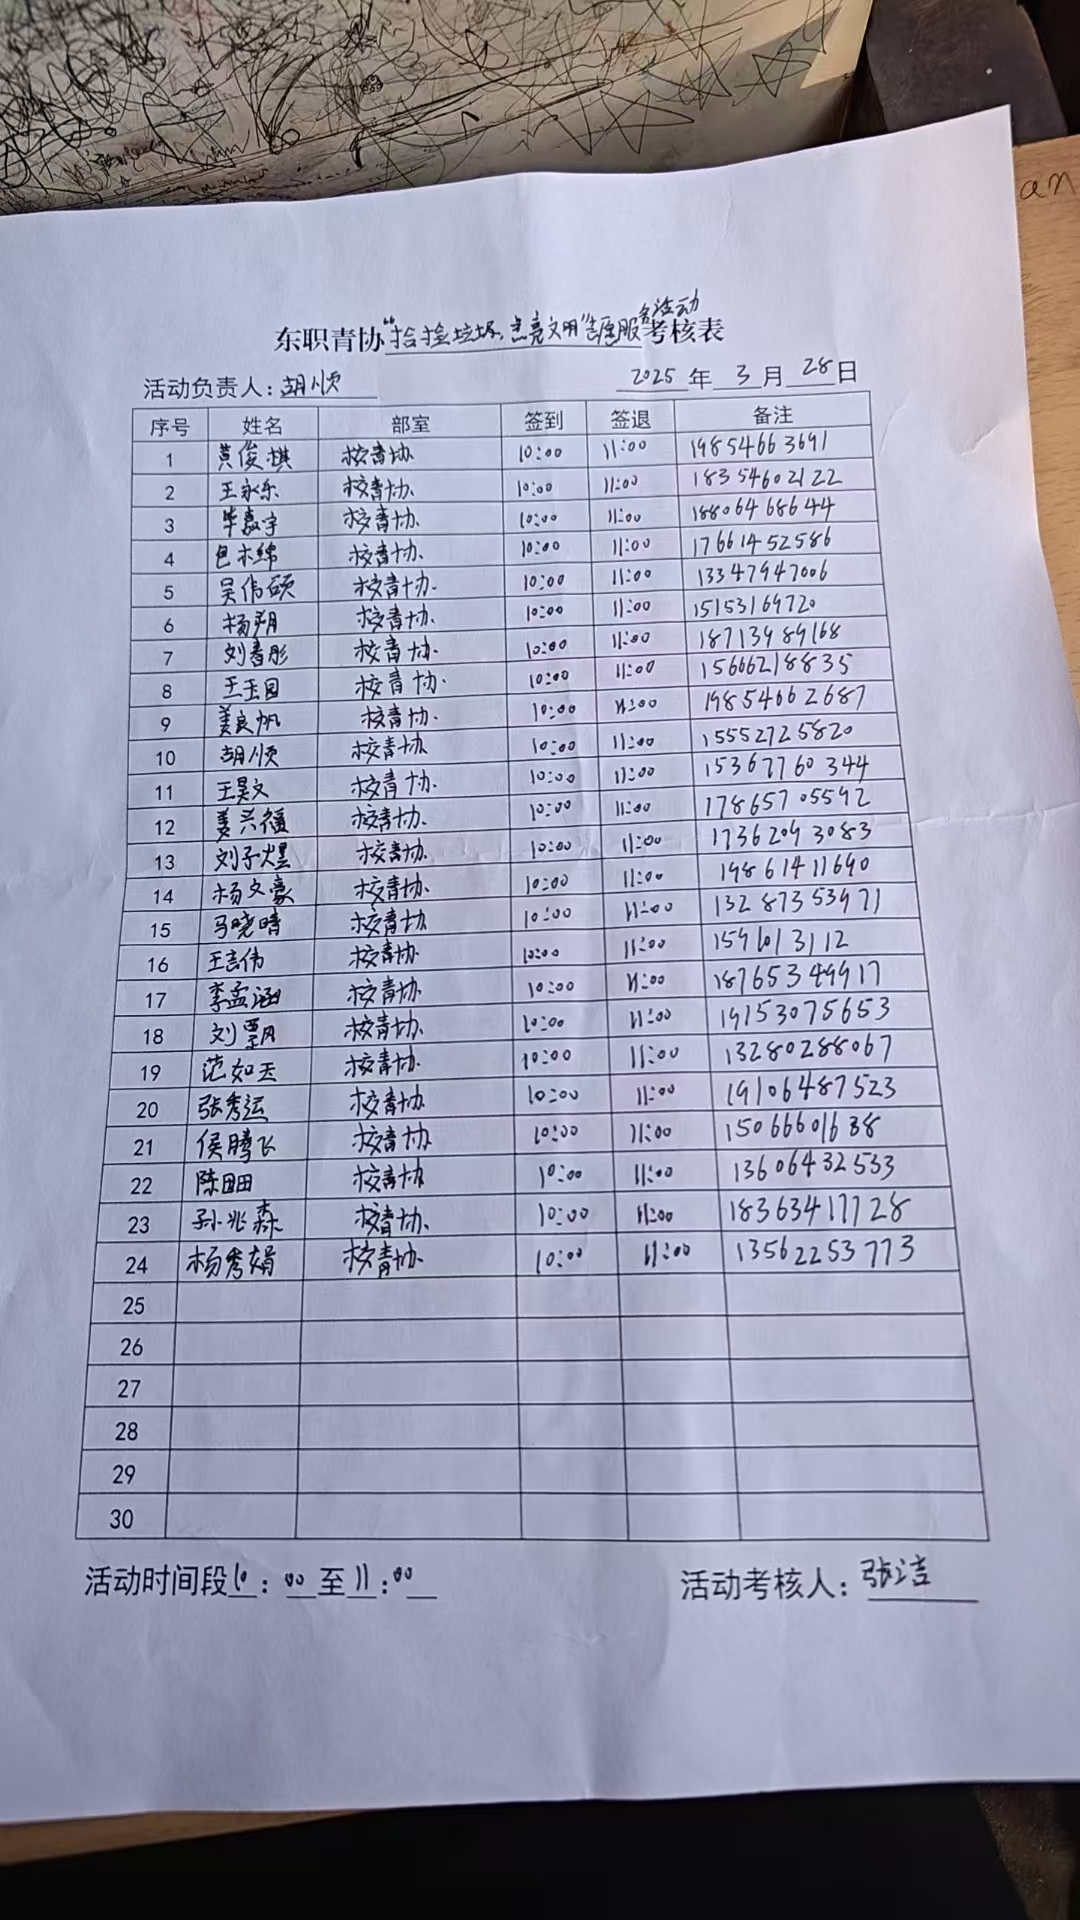 an
东职青协“拾捡垃圾,点亮文明”志愿服务活动考核表
活动负责人:胡顺 2025年3月28日
序号 姓名 部室 签到 签退 备注
1 黄俊棋 校青协 10:00 11:00 19854663691
2 王永乐 校青协. 10:00 11:00 18354602122
3 毕嘉宇 校青协. 10:00 11:00 18806468644
4 包木绵 校青协. 10:00 11:00 17661452586
5 吴伟硕 校青协. 10:00 11:00 13347947006
6 杨朔 校青协. 10:00 11:00 15153169720
7 刘春彤 校青协. 10:00 11:00 18713989168
8 王玉园 校青协. 10:00 11:00 15666218835
9 姜良帆 校青协. 10:00 11:00 19854662687
10 胡顺 校青协 10:00 11:00 15552725820
11 王昊文 校青协. 10:00 11:00 15367760344
12 姜兴福 校青协. 10:00 11:00 17865705592
13 刘子煜 校青协. 10:00 11:00 17362093083
14 杨文豪 校青协. 10:00 11:00 19861411690
15 马晓晴 校青协 10:00 11:00 13287353971
16 王志伟 校青协. 10:00 11:00 1596013112
17 李孟涵 校青协. 10:00 11:00 18765349917
18 刘飘 校青协. 10:00 11:00 19153075653
19 范如玉 校青协. 10:00 11:00 13280288067
20 张秀运 校青协. 10:00 11:00 19106487523
21 侯腾飞 校青协. 10:00 11:00 15066601638
22 陈田田 校青协. 10:00 11:00 13606432533
23 孙兆森 校青协. 10:00 11:00 18363417728
24 杨秀娟 校青协. 10:00 11:00 13562253773
25
26
27
28
29
30
活动时间段10:00至11:00 活动考核人:张洁